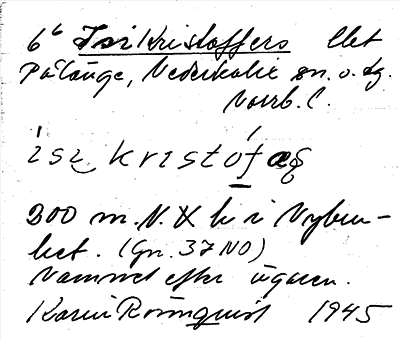 6b IsiKristoffers lbet
Pålänge, Nederkalix sn. o. tg.
Norrb. l.
300 m. N. X k i Nyben-
bet. (Gn. 37 NO)
Namnet efter ägaren.
Karin Rönnquist 1945